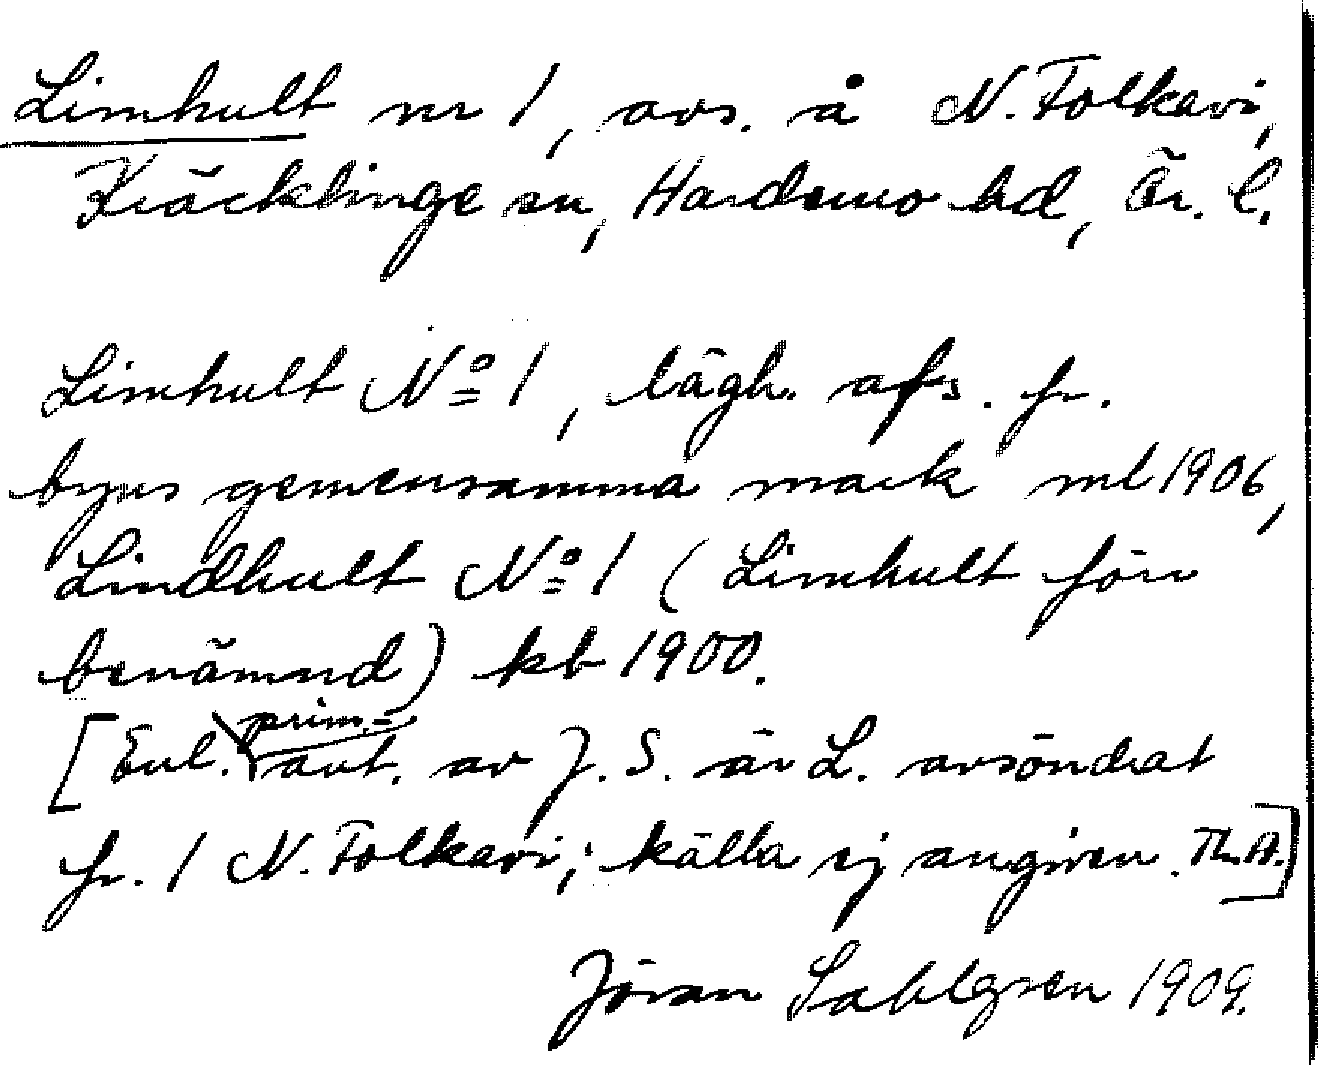 Limhult nr 1, avs. å N. Folkavi,
Kräcklinge sn, Hardemo hd, Ör. l.
Limhult No 1, lägh. afs. fr.
byns gemensamma mark ml 1906,
Lindhult No 1 (Limhult förr
benämnd) kb 1900.
[Enl. prim.-
ant. av J. S. är L. avsöndrat
fr. 1 N. Folkavi; källa ej angiven. Th. A.]
Jöran Sahlgren 1909.